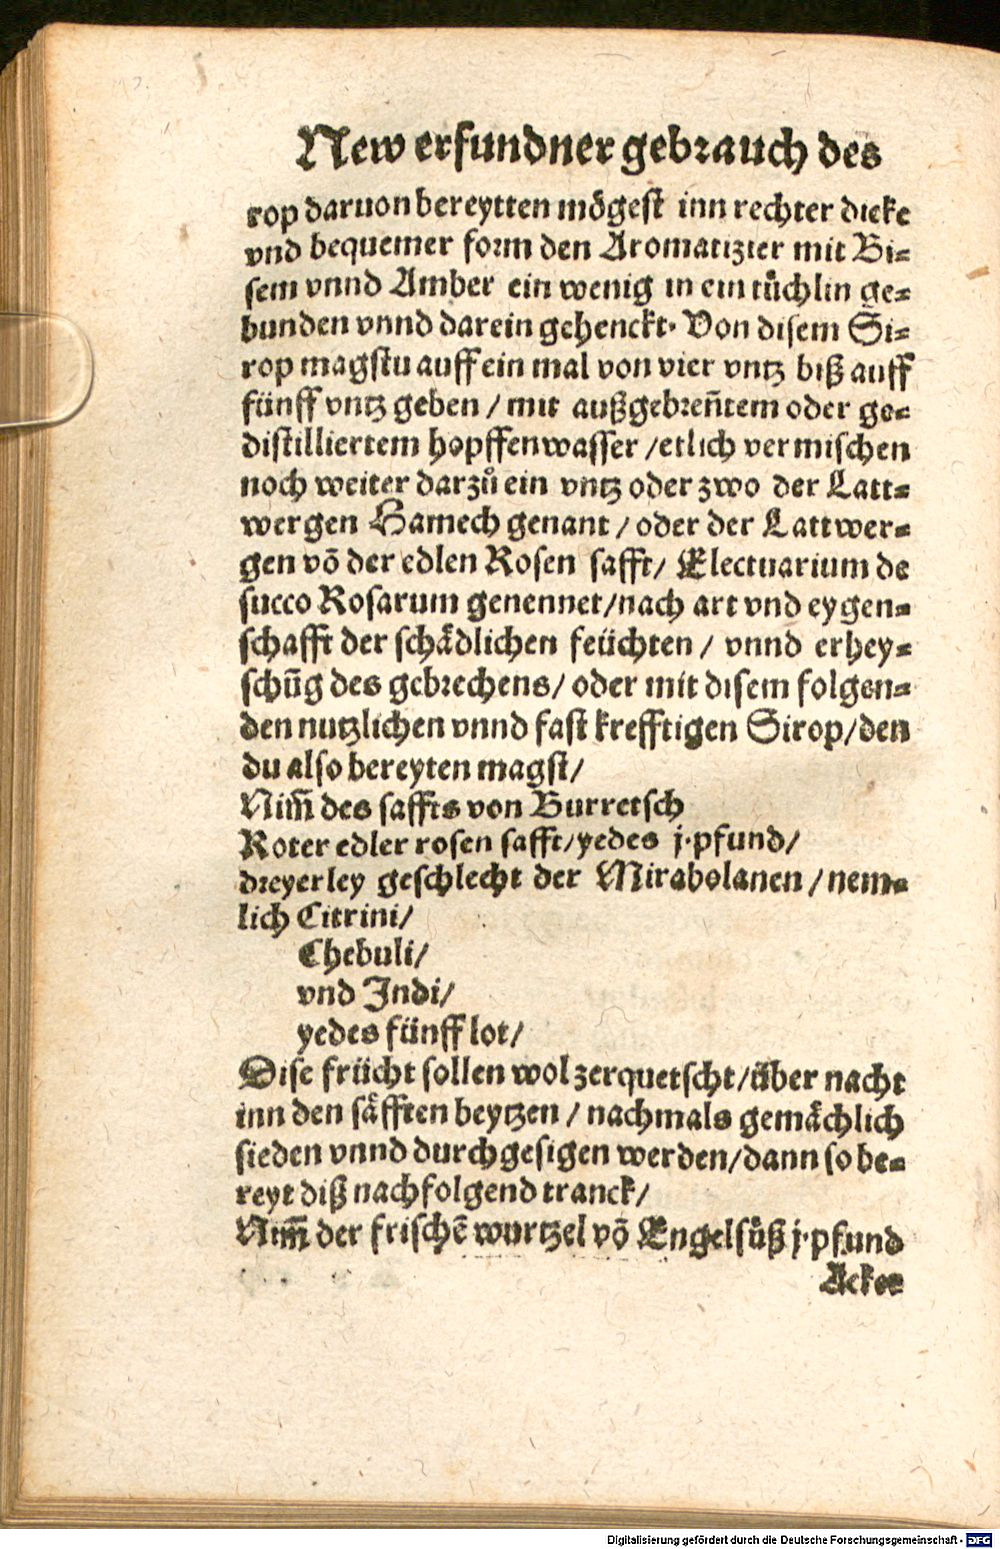 New erfundner gebrauch des
rop daruon bereytten mögest inn rechter dicke
vnd bequemer form den Aromatizier mit Bi⸗
sem vnnd Amber ein wenig in ein tüchlin ge⸗
bunden vnnd darein gehenckt. Von disem Si⸗
rop magstu auff ein mal von vier vntz biß auff
fünff vntz geben / mit außgebreñtem oder ge⸗
distilliertem hopffenwasser /etlich vermischen
noch weiter darzů ein vntz oder zwo der Latt⸗
wergen Hamech genant / oder der Lattwer⸗
gen võ der edlen Rosen safft/ Electuarium de
succo Rosarum genennet/nach art vnd eygen⸗
schafft der schädlichen feüchten / vnnd erhey⸗
schũg des gebrechens/ oder mit disem folgen⸗
den nutzlichen vnnd fast krefftigen Sirop/den
du also bereyten magst/
Nim̃ des saffts von Burretsch
Roter edler rosen safft/yedes j.pfund/
dreyerley geschlecht der Mirabolanen / nem⸗
lich Citrini/
Chebuli/
vnd Indi/
yedes fünff lot/
Dise frücht sollen wol zerquetscht/über nacht
inn den säfften beytzen / nachmals gemächlich
sieden vnnd durchgesigen werden/dann so be⸗
reyt diß nachfolgend tranck/
Nim̃ der frischẽ wurtzel võ Engelsüß j.pfund
Acker
Digitalisierung gefördert durch die Deutsche Forschungsgemeinschaft - DFG